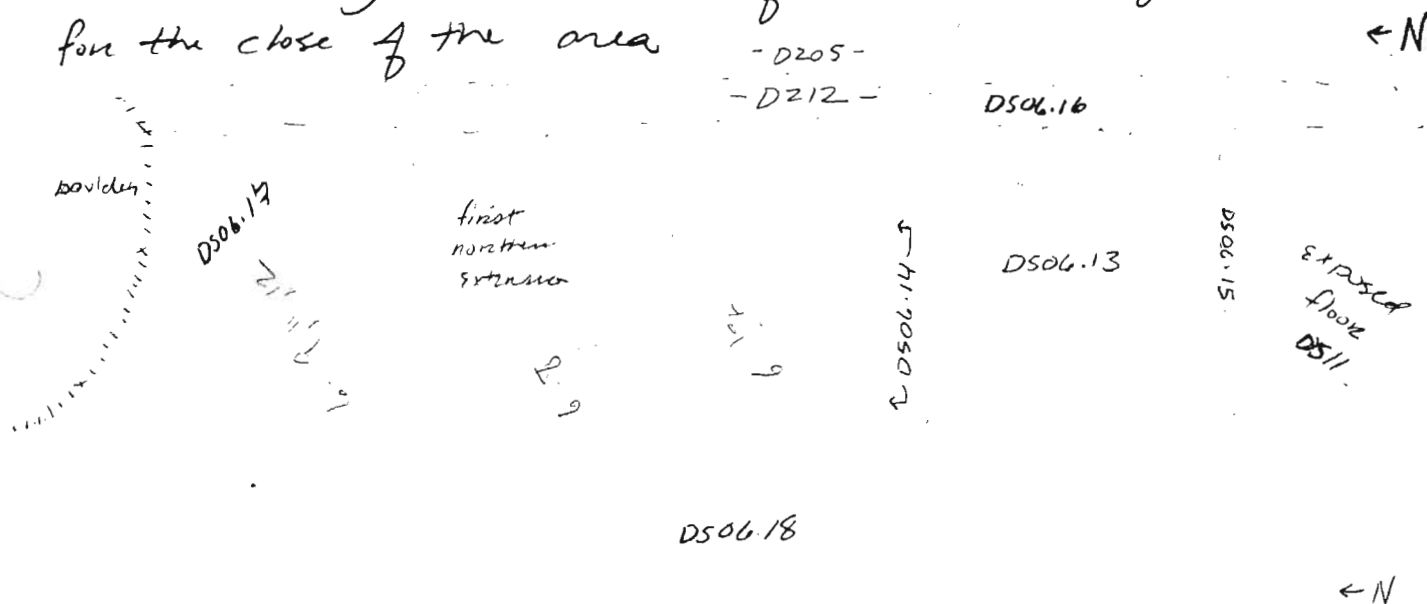 for the close of the area
← N
- D205 -
- D212 -
D506.16
boulder
D506.17
first
northern
extension
D506.14
D506.13
D506.15
Exposed
floor
D511
D506.18
← N